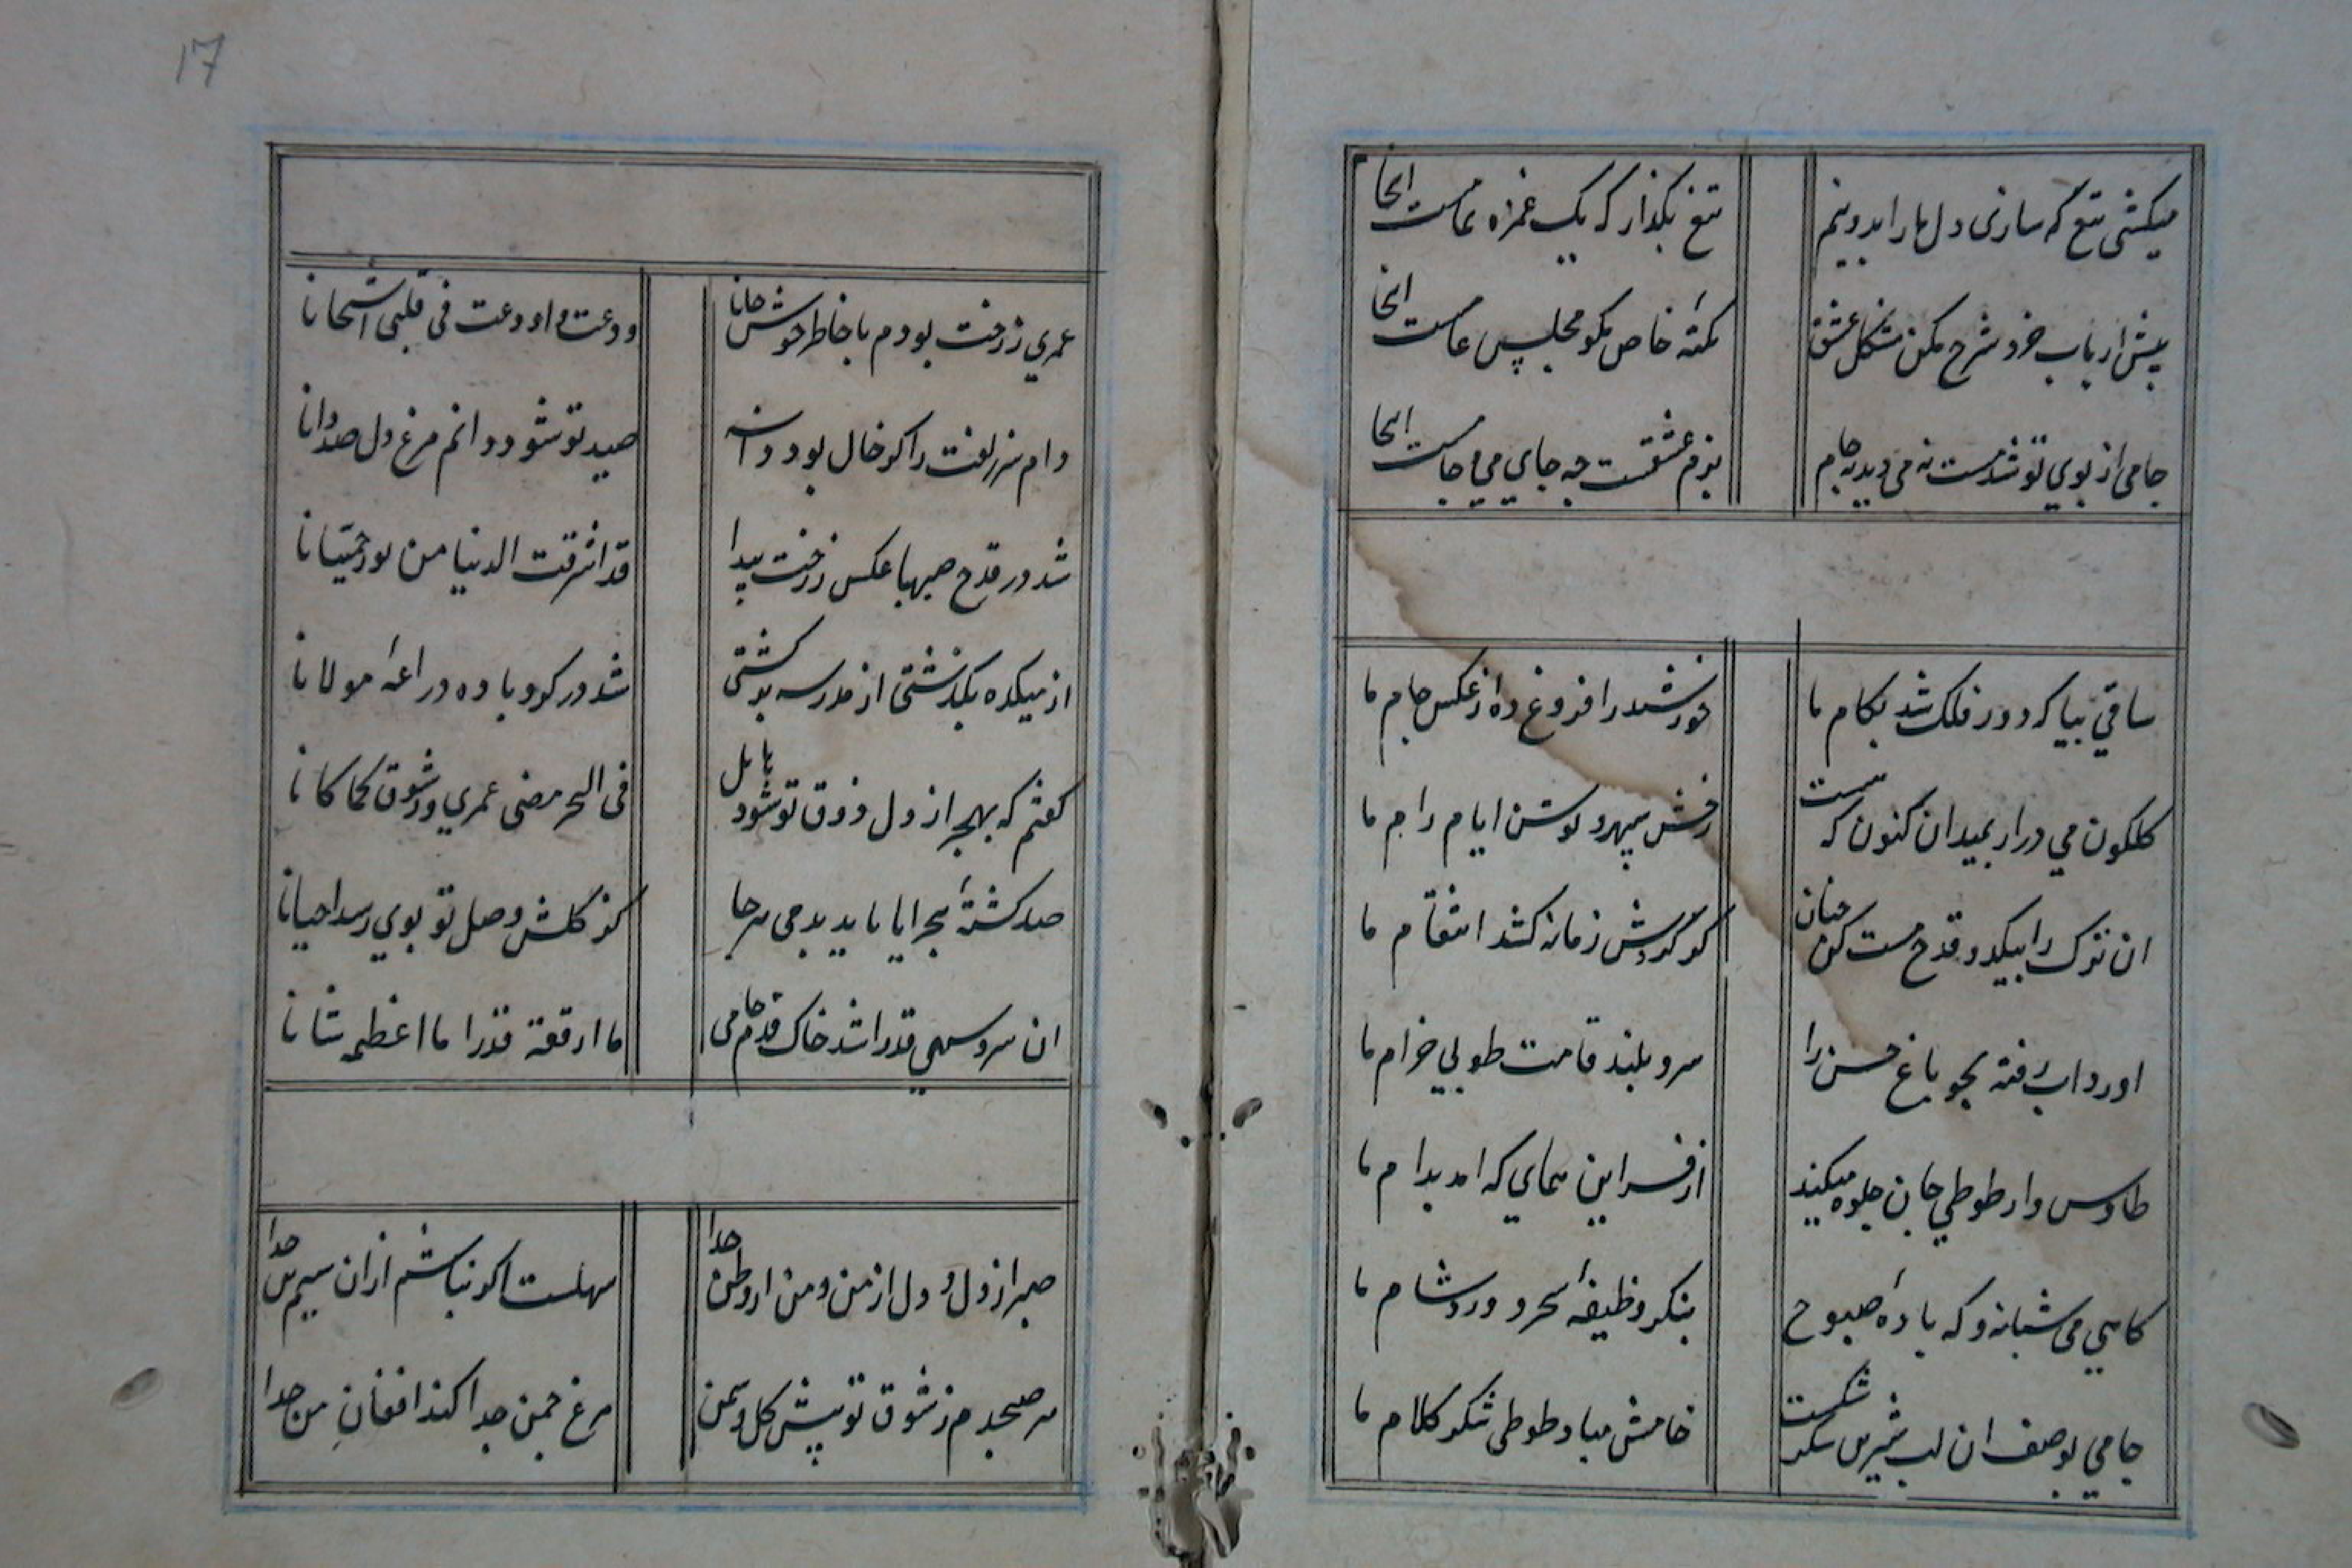 میکشی تیغ که سازی دل ما را بدو نیم
تیغ بگذار که یک غمزه تمامست اینجا
پیش ارباب خرد شرح مکن مشکل عشق
نکتهٔ خاص مگو مجلس عامست اینجا
جامی از بوی تو شد مست نه می دید نه جام
بزم عشقست چه جای می و جامست اینجا
ساقی بیا که دور فلک شد بکام ما
خورشید را فروغ ده از عکس جام ما
گلگون می درار بمیدان کنون که هست
رخش سپهر و توسن ایام رام ما
ان ترک را بیکدو قدح مست کن چنان
کو گردش زمانه کشد انتقام ما
اورد اب رفته بجو باغ حسن را
سرو بلند قامت طوبی خرام ما
طاوس وار طوطی جان جلوه میکند
از فر این همای که امد بدام ما
گاهی می شبانه و گه بادهٔ صبوح
بنگر وظیفهٔ سحر و ورد شام ما
جامی بوصف ان لب شیرین شکر شکست
خامش مباد طوطی شکر کلام ما
17
عمری ز رخت بودم با خاطر خوش جانا
ودعت و اودعت فی قلبی اشجانا
دام سر زلفت را گو خال بود دانه
صید تو شود دانم مرغ دل صد دانا
شد در قدح صهبا عکس ز رخت پیدا
قد اشرقت الدنیا من نور حمیانا
از میکده بگذشتی از مدرسه بو گشتی
شد در گرو باده دراعهٔ مولانا
گفتم که بهجر از دل ذوق تو شود زایل
فی الهجر مضی عمری و الشوق کما کانا
صد کشتهٔ هجر ایا باید بدمی بر جا
کز گلشن وصل تو بوی رسد احیانا
ان سرو سهی قد را شد خاک قدم جامی
ما ارفعه قدرا ما اعظمه شانا
صبر از دل و دل از من و من از وطن جدا
سهلست اگر نباشم از ان سیم تن جدا
هر صبحدم ز شوق تو پیش گل و سمن
مرغ چمن جدا کند افغان من جدا